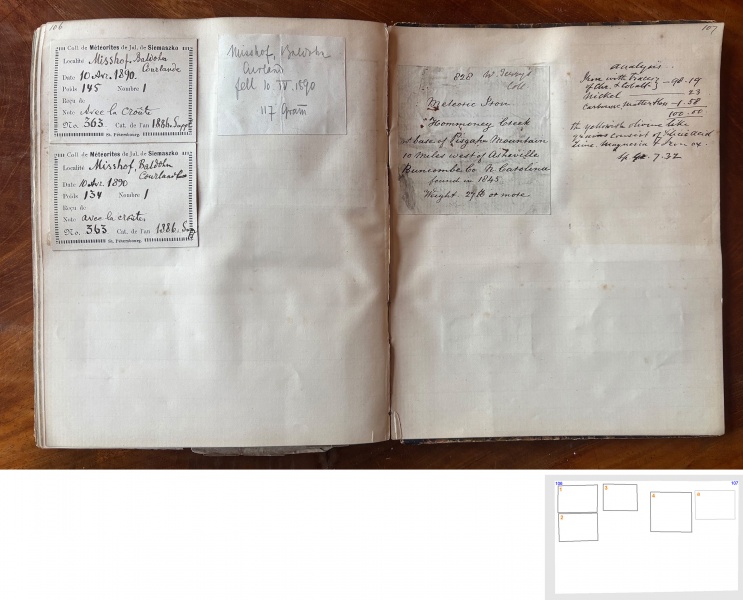 106
Coll de Météorites de Jul. de Siemaszko
Localité Misshof, Baldohn
Courlande
Date 10 Avr. 1890.
Poids 145 Nombre 1
Reçu de
Notes Avec la croûte
No. 363 Cat. de l'an 1886. Suppl
St. Pétersbourg.
Coll de Météorites de Jul. de Siemaszko
Localité Misshof, Baldohn
Courlande
Date 10 Avr. 1890
Poids 134 Nombre 1
Reçu de
Notes avec la croûte
No. 363 Cat. de l'an 1886.
St. Pétersbourg.
Misshof, Baldohn
Curland
fell 10 IV. 1890
117 Gram
107
828 W. Terry's
Coll.
Meteoric Iron
Hommoney Creek
at base of Pisgah Mountain
10 Miles west of Asheville
Buncombe Co. N. Carolina
found in 1845.
Weight. 27 lb or more
Analysis.
Iron with traces
of Chr. & Cobalt } 98.19
Nickel 23
Carbonac. Matter &c 1.58
100.00
The yellowish olivine like
grains consist of silicic acid
lime magnesia & iron ox.
Sp gr. 7.32
106
107
1
2
3
4